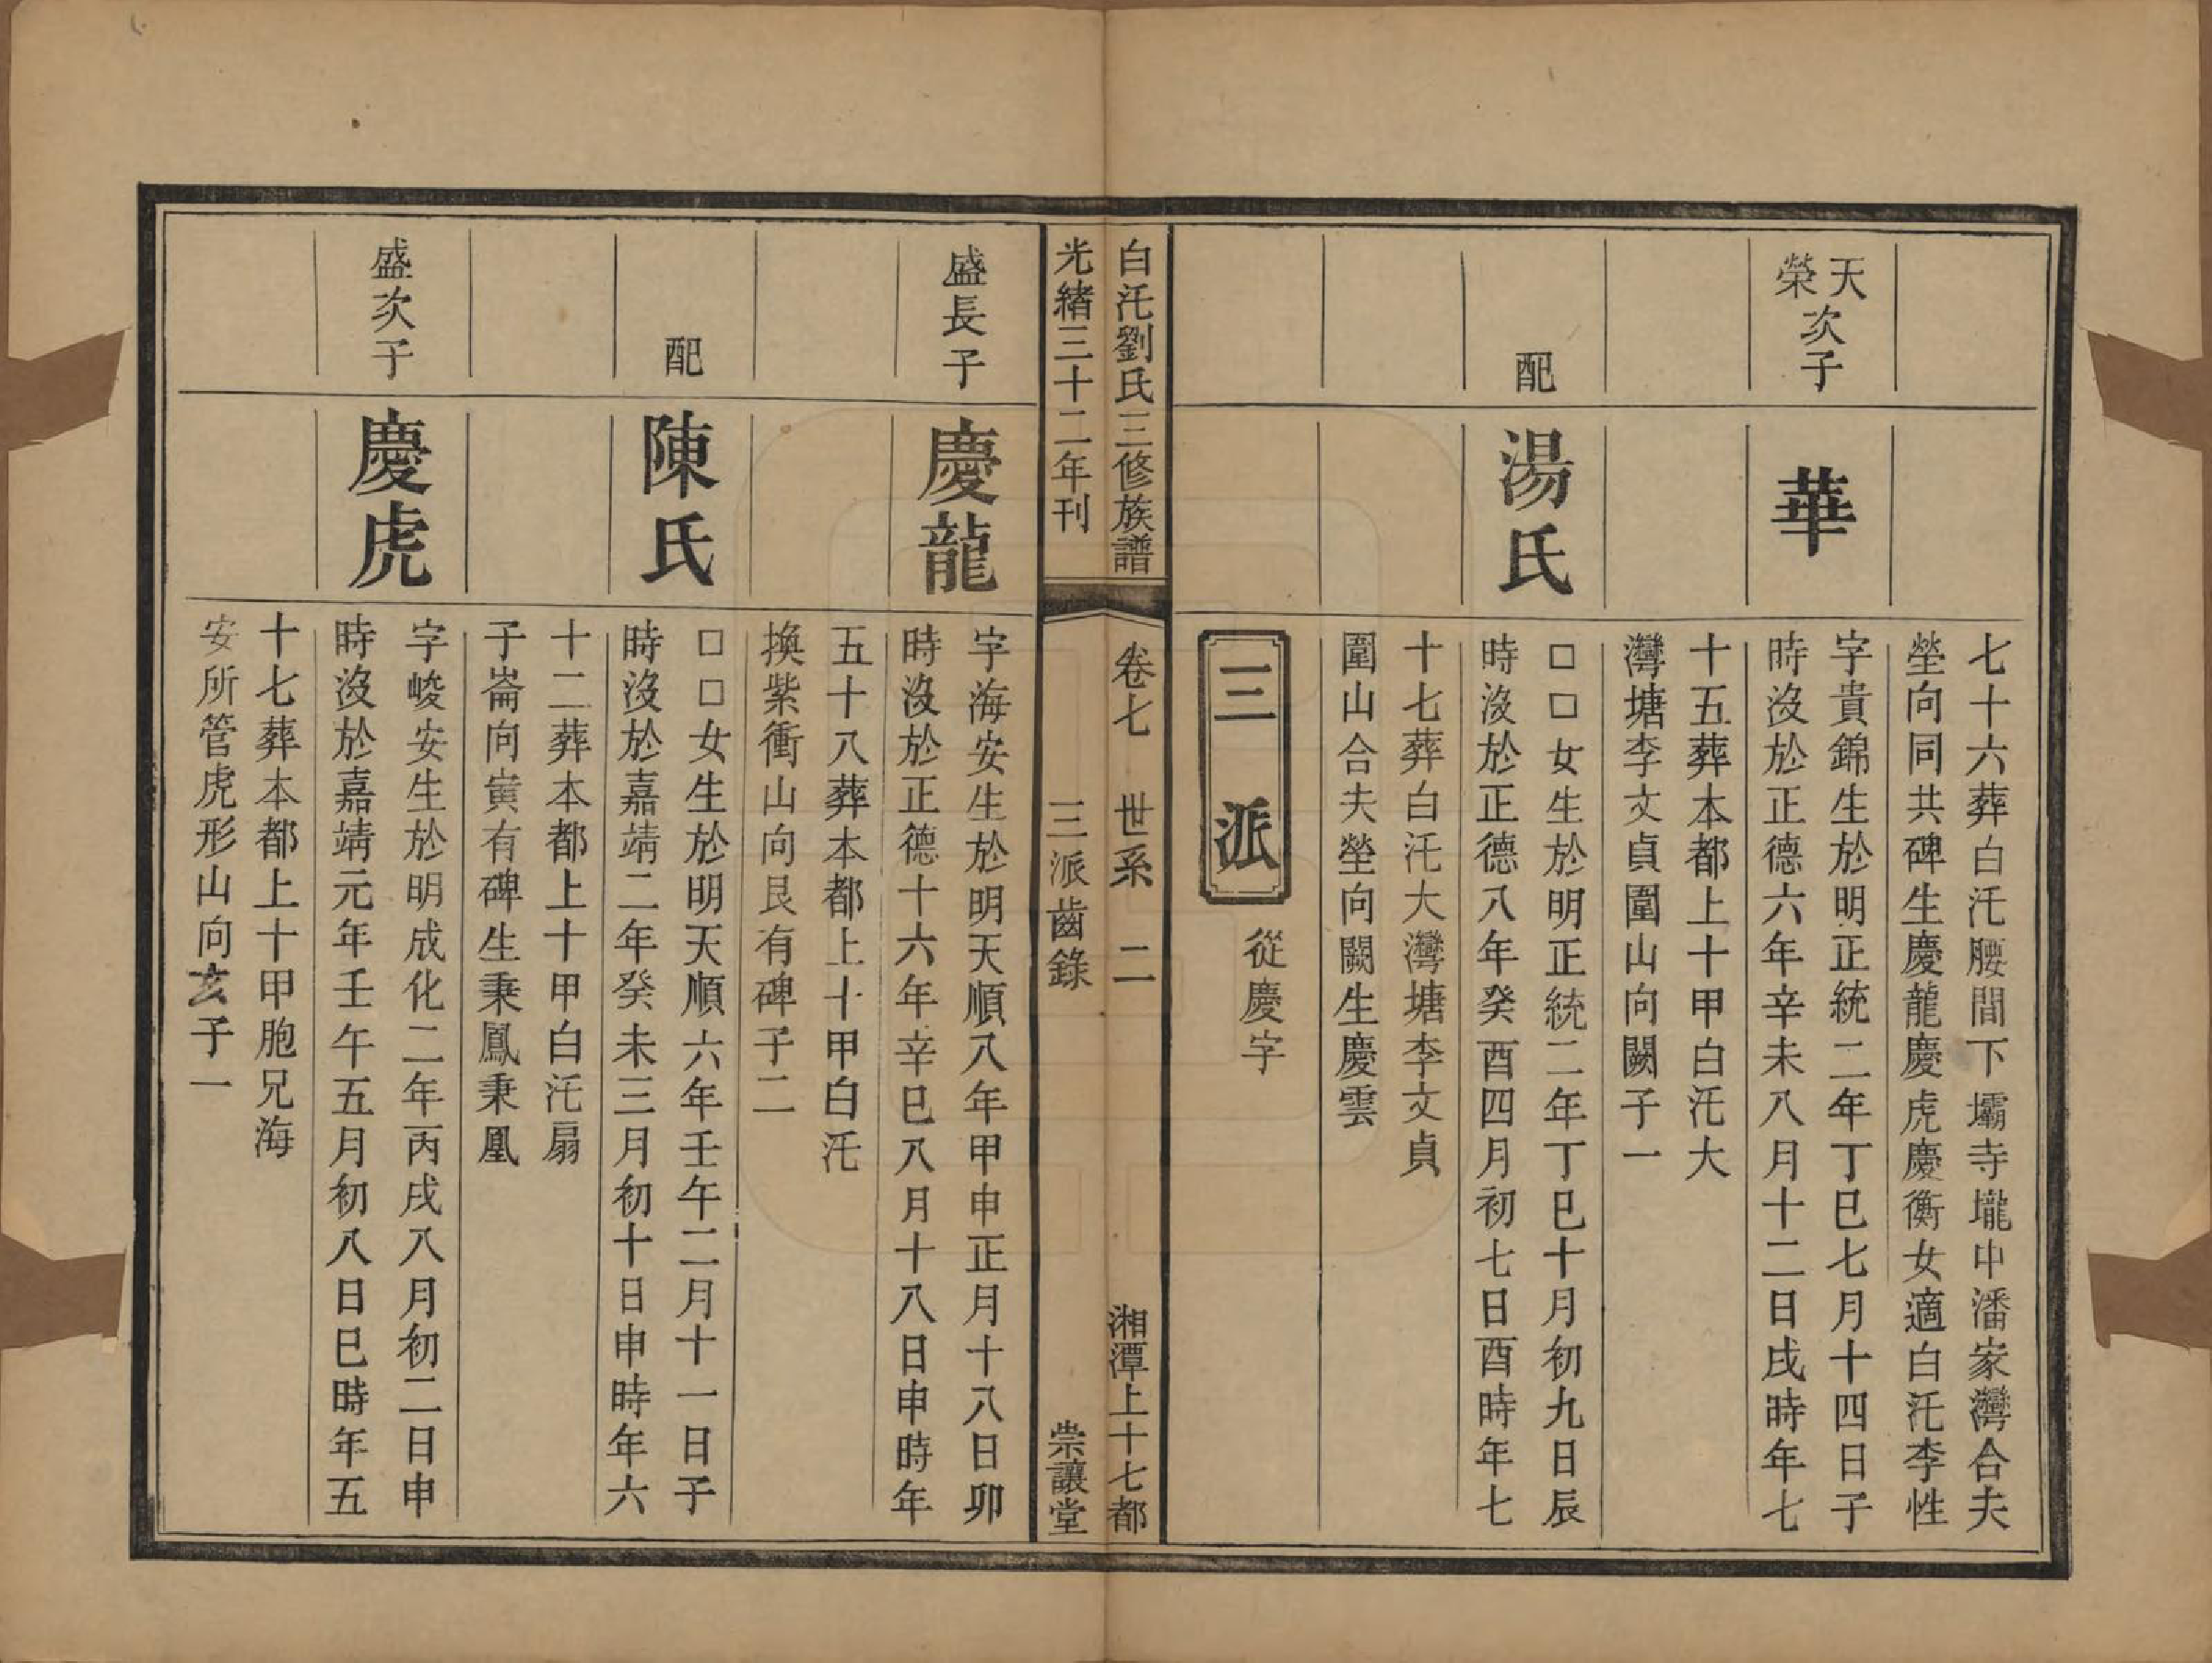 七十六葬白汑腰間下壩寺壠中潘家灣合夫
塋向同共碑生慶龍慶虎慶衡女適白汑李性
天榮次子
華
字貴錦生於明正統二年丁巳七月十四日子
時沒於正德六年辛未八月十二日戌時年七
十五葬本都上十甲白汑大
灣塘李文貞圍山向闕子一
配
湯氏
□□女生於明正統二年丁巳十月初九日辰
時沒於正德八年癸酉四月初七日酉時年七
十七葬白汑大灣塘李文貞
圍山合夫塋向闕生慶雲
三派
從慶字
白汑劉氏三修族譜
卷七
世系
二
湘潭上十七都
光緒三十二年刊
三派齒錄
崇讓堂
盛長子
慶龍
字海安生於明天順八年甲申正月十八日卯
時沒於正德十六年辛巳八月十八日申時年
五十八葬本都上十甲白汑
換紫衝山向艮有碑子二
配
陳氏
□□女生於明天順六年壬午二月十一日子
時沒於嘉靖二年癸未三月初十日申時年六
十二葬本都上十甲白汑扇
子崙向寅有碑生秉鳳秉凰
盛次子
慶虎
字峻安生於明成化二年丙戌八月初二日申
時沒於嘉靖元年壬午五月初八日巳時年五
十七葬本都上十甲胞兄海
安所管虎形山向亥子一